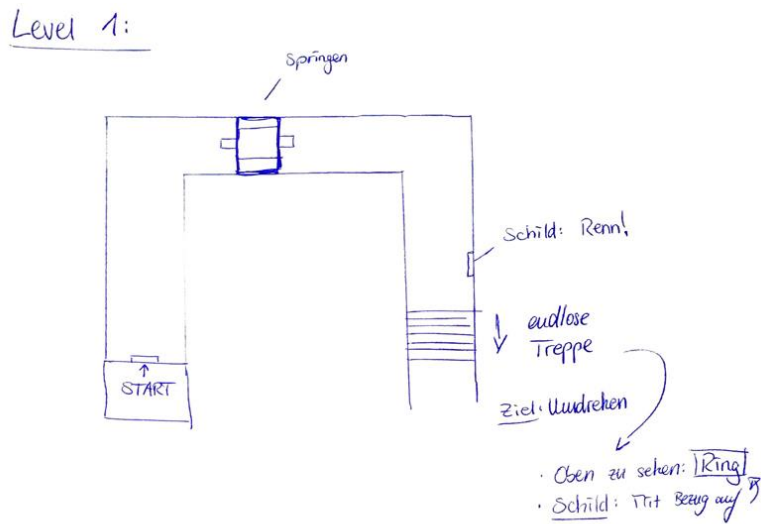 Level 1:
Springen
Schild: Renn!
endlose
Treppe
START
Ziel: Umdrehen
· Oben zu sehen: Ring
· Schild: Mit Bezug auf